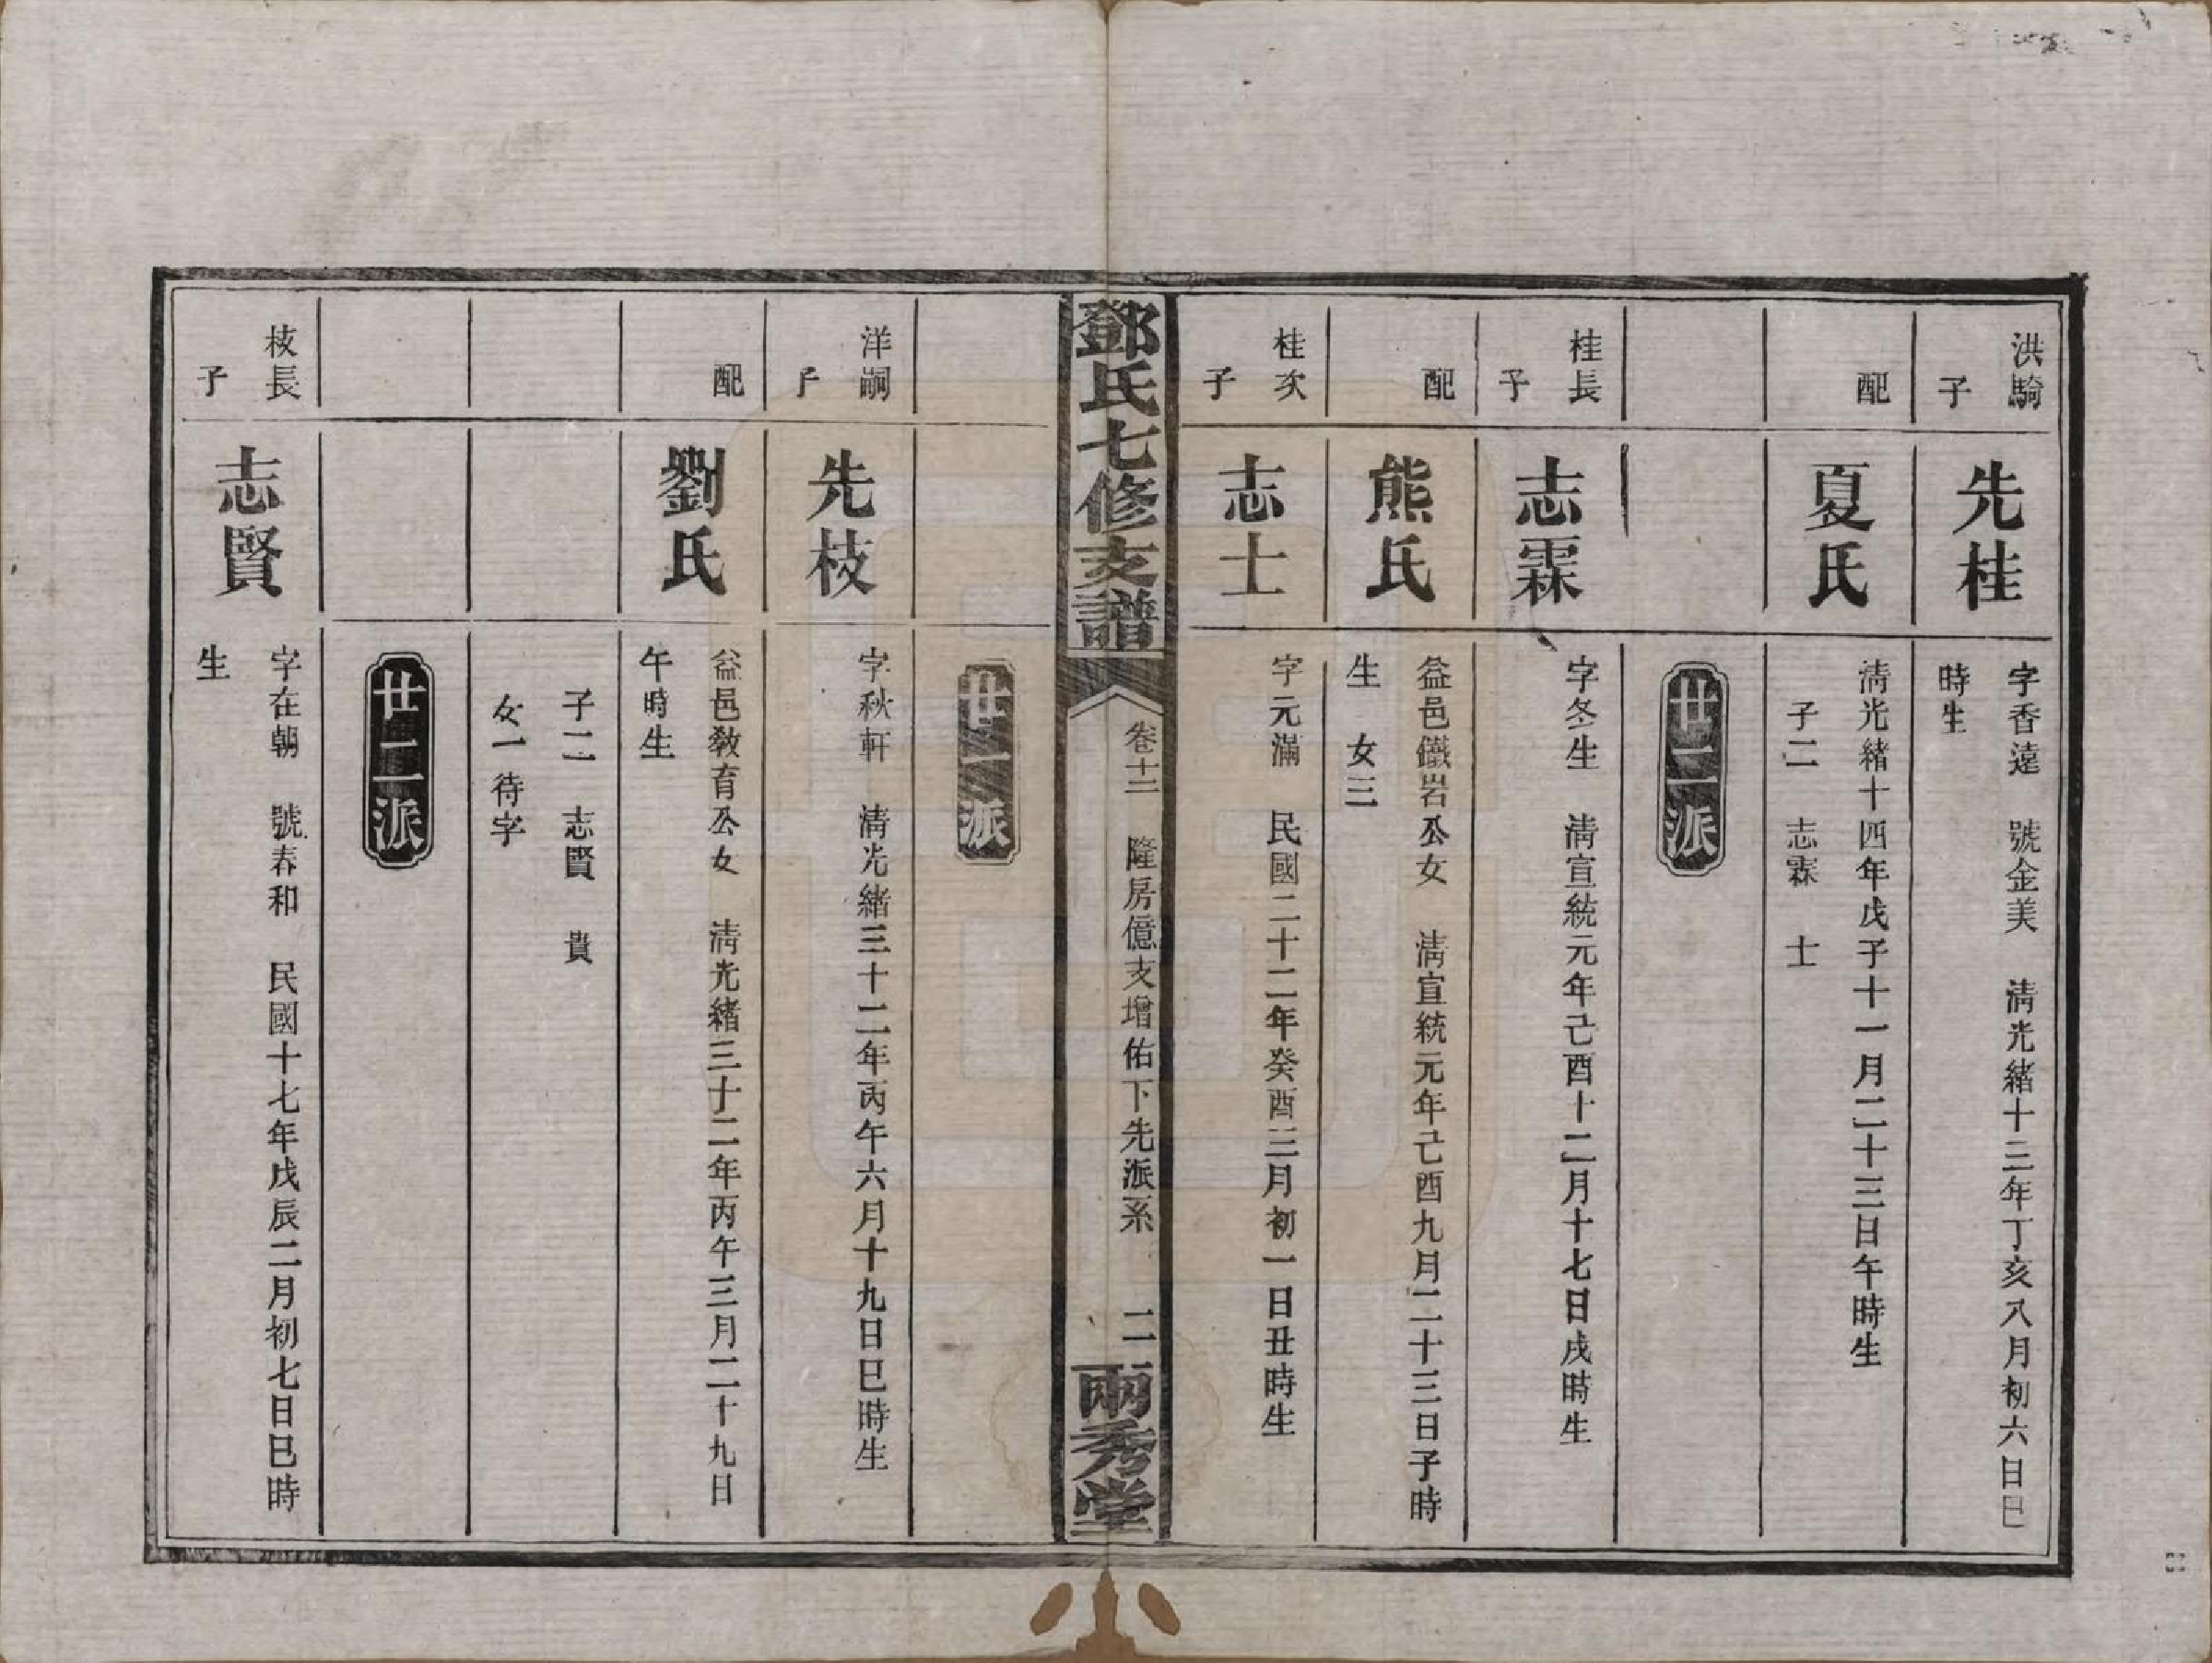 洪騎
子
先桂
字香遠　號金美　清光緒十三年丁亥八月初六日巳
時生
配
夏氏
清光緒十四年戊子十一月二十三日午時生
子二　志霖　士
廿二派
桂長
子
志霖
字冬生　清宣統元年己酉十二月十七日戌時生
配
熊氏
益邑鐵岩公女　清宣統元年己酉九月二十三日子時
生　女三
桂次
子
志士
字元滿　民國二十二年癸酉三月初一日丑時生
鄧氏七修支譜
卷十二　隆房億支增佑下先派系　二
兩秀堂
廿一派
洋嗣
子
先枝
字秋軒　清光緒三十二年丙午六月十九日巳時生
配
劉氏
益邑教育公女　清光緒三十二年丙午三月二十九日
午時生
子二　志賢　貴
女一待字
廿二派
枝長
子
志賢
字在朝　號春和　民國十七年戊辰二月初七日巳時
生